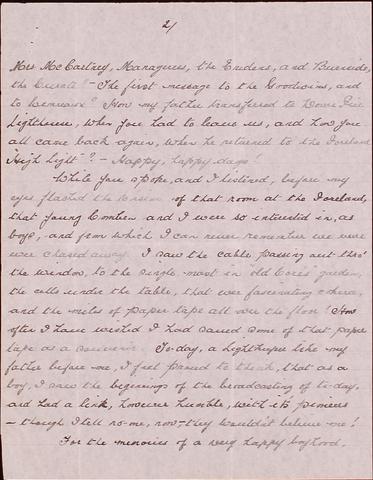 2/
Mrs McCartney, Managuers, the Enders, and Burnside,
the Currate? - The first message to the Goodwins, and
to Wimereux? How my father transferred to Down Fire
Lighthouse, when you had to leave us, and how you
all came back again, when he returned to the Foreland
High Light"? - Happy, happy days!
While you spoke, and I listened, before my
eyes flashed the vision of that room at the Foreland,
that young and I were so interested in, as
boys, and from which I can never remember we were
ever chased away. I saw the cable passing out thro'
the window, to the single mast in "old garden,
the cells under the table, that were fascinating
and the miles of paper tape all over the floor! How
often I have wished I had saved some of that paper
tape as a souvenir. To-day, a Lightkeeper like my
father before me, I feel proud to think, that as a
boy, I saw the beginnings of the broadcasting of to-day,
and had a link, however humble, with its pioneers
- though I tell no-one, now - they wouldn't believe me!
For the memories of a very happy boyhood.